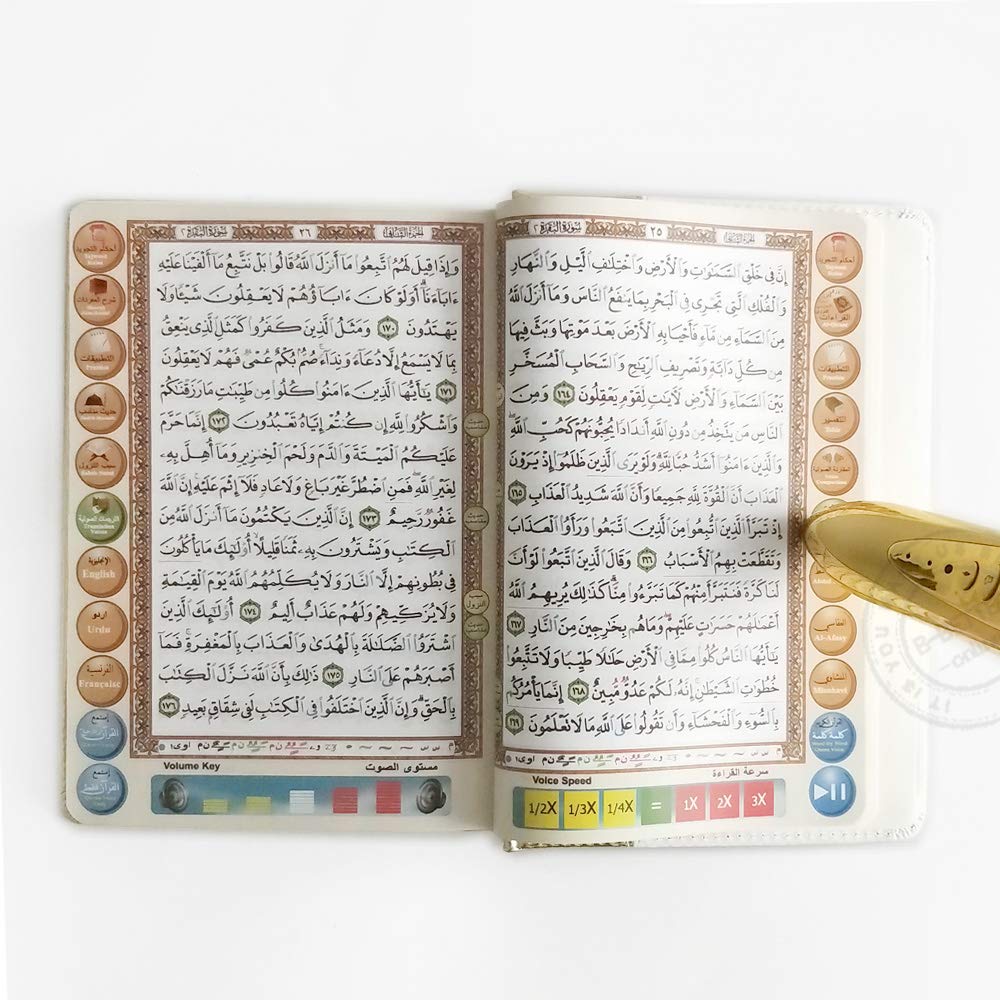 الجزء الثاني ٢٥ سورة البقرة ٢
إِنَّ فِي خَلْقِ ٱلسَّمَٰوَٰتِ وَٱلْأَرْضِ وَٱخْتِلَٰفِ ٱلَّيْلِ وَٱلنَّهَارِ
وَٱلْفُلْكِ ٱلَّتِي تَجْرِي فِي ٱلْبَحْرِ بِمَا يَنفَعُ ٱلنَّاسَ وَمَآ أَنزَلَ ٱللَّهُ
مِنَ ٱلسَّمَآءِ مِن مَّآءٍ فَأَحْيَا بِهِ ٱلْأَرْضَ بَعْدَ مَوْتِهَا وَبَثَّ فِيهَا
مِن كُلِّ دَآبَّةٍ وَتَصْرِيفِ ٱلرِّيَٰحِ وَٱلسَّحَابِ ٱلْمُسَخَّرِ
بَيْنَ ٱلسَّمَآءِ وَٱلْأَرْضِ لَأٓيَٰتٍ لِّقَوْمٍ يَعْقِلُونَ ١٦٤ وَمِنَ
ٱلنَّاسِ مَن يَتَّخِذُ مِن دُونِ ٱللَّهِ أَندَادًا يُحِبُّونَهُمْ كَحُبِّ ٱللَّهِ
وَٱلَّذِينَ ءَامَنُوٓا۟ أَشَدُّ حُبًّا لِّلَّهِ وَلَوْ يَرَى ٱلَّذِينَ ظَلَمُوٓا۟ إِذْ يَرَوْنَ
ٱلْعَذَابَ أَنَّ ٱلْقُوَّةَ لِلَّهِ جَمِيعًا وَأَنَّ ٱللَّهَ شَدِيدُ ٱلْعَذَابِ ١٦٥
إِذْ تَبَرَّأَ ٱلَّذِينَ ٱتُّبِعُوا۟ مِنَ ٱلَّذِينَ ٱتَّبَعُوا۟ وَرَأَوُا۟ ٱلْعَذَابَ
وَتَقَطَّعَتْ بِهِمُ ٱلْأَسْبَابُ ١٦٦ وَقَالَ ٱلَّذِينَ ٱتَّبَعُوا۟ لَوْ أَنَّ
لَنَا كَرَّةً فَنَتَبَرَّأَ مِنْهُمْ كَمَا تَبَرَّءُوا۟ مِنَّا كَذَٰلِكَ يُرِيهِمُ ٱللَّهُ
أَعْمَٰلَهُمْ حَسَرَٰتٍ عَلَيْهِمْ وَمَا هُم بِخَٰرِجِينَ مِنَ ٱلنَّارِ ١٦٧
يَٰٓأَيُّهَا ٱلنَّاسُ كُلُوا۟ مِمَّا فِي ٱلْأَرْضِ حَلَٰلًا طَيِّبًا وَلَا تَتَّبِعُوا۟
خُطُوَٰتِ ٱلشَّيْطَٰنِ إِنَّهُۥ لَكُمْ عَدُوٌّ مُّبِينٌ ١٦٨ إِنَّمَا يَأْمُرُكُم
بِٱلسُّوٓءِ وَٱلْفَحْشَآءِ وَأَن تَقُولُوا۟ عَلَى ٱللَّهِ مَا لَا تَعْلَمُونَ ١٦٩
سرعة القراءة
Voice Speed
1/2X 1/3X 1/4X = 1X 2X 3X
أحكام التجويد
Tajweed Rules
القراءات
التطبيقات
Practice
التفسير
المقارنة الصوتية
العفاسي
Al-Afasy
المنشاوي
Minshawi
كلمة كلمة
الجزء الثاني ٢٦ سورة البقرة ٢
وَإِذَا قِيلَ لَهُمُ ٱتَّبِعُوا۟ مَآ أَنزَلَ ٱللَّهُ قَالُوا۟ بَلْ نَتَّبِعُ مَآ أَلْفَيْنَا عَلَيْهِ
ءَابَآءَنَآ أَوَلَوْ كَانَ ءَابَآؤُهُمْ لَا يَعْقِلُونَ شَيْـًٔا وَلَا
يَهْتَدُونَ ١٧٠ وَمَثَلُ ٱلَّذِينَ كَفَرُوا۟ كَمَثَلِ ٱلَّذِي يَنْعِقُ
بِمَا لَا يَسْمَعُ إِلَّا دُعَآءً وَنِدَآءً صُمٌّۢ بُكْمٌ عُمْيٌ فَهُمْ لَا يَعْقِلُونَ
١٧١ يَٰٓأَيُّهَا ٱلَّذِينَ ءَامَنُوا۟ كُلُوا۟ مِن طَيِّبَٰتِ مَا رَزَقْنَٰكُمْ
وَٱشْكُرُوا۟ لِلَّهِ إِن كُنتُمْ إِيَّاهُ تَعْبُدُونَ ١٧٢ إِنَّمَا حَرَّمَ
عَلَيْكُمُ ٱلْمَيْتَةَ وَٱلدَّمَ وَلَحْمَ ٱلْخِنزِيرِ وَمَآ أُهِلَّ بِهِۦ
لِغَيْرِ ٱللَّهِ فَمَنِ ٱضْطُرَّ غَيْرَ بَاغٍ وَلَا عَادٍ فَلَآ إِثْمَ عَلَيْهِ إِنَّ ٱللَّهَ
غَفُورٌ رَّحِيمٌ ١٧٣ إِنَّ ٱلَّذِينَ يَكْتُمُونَ مَآ أَنزَلَ ٱللَّهُ مِنَ
ٱلْكِتَٰبِ وَيَشْتَرُونَ بِهِۦ ثَمَنًا قَلِيلًا أُو۟لَٰٓئِكَ مَا يَأْكُلُونَ
فِي بُطُونِهِمْ إِلَّا ٱلنَّارَ وَلَا يُكَلِّمُهُمُ ٱللَّهُ يَوْمَ ٱلْقِيَٰمَةِ
وَلَا يُزَكِّيهِمْ وَلَهُمْ عَذَابٌ أَلِيمٌ ١٧٤ أُو۟لَٰٓئِكَ ٱلَّذِينَ
ٱشْتَرَوُا۟ ٱلضَّلَٰلَةَ بِٱلْهُدَىٰ وَٱلْعَذَابَ بِٱلْمَغْفِرَةِ فَمَآ
أَصْبَرَهُمْ عَلَى ٱلنَّارِ ١٧٥ ذَٰلِكَ بِأَنَّ ٱللَّهَ نَزَّلَ ٱلْكِتَٰبَ
بِٱلْحَقِّ وَإِنَّ ٱلَّذِينَ ٱخْتَلَفُوا۟ فِي ٱلْكِتَٰبِ لَفِي شِقَاقٍۭ بَعِيدٍ ١٧٦
مستوى الصوت
Volume Key
أحكام التجويد
Tajweed Rules
شرح المفردات
التطبيقات
Practice
سبب النزول
الترجمات الصوتية
Translation Voices
الإنجليزية
English
اردو
Urdu
الفرنسية
Française
إستمع
إستمع